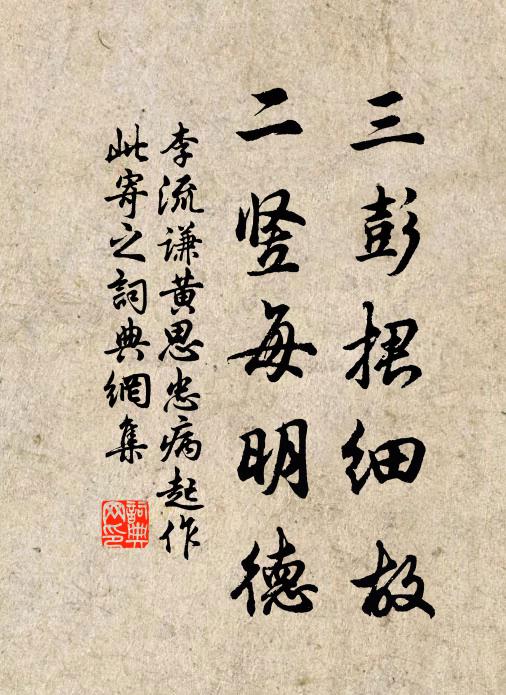 三彭捃细故
二竖每明德
李流谦黄思忠病起作
此寄之詞典網集
詞典网印